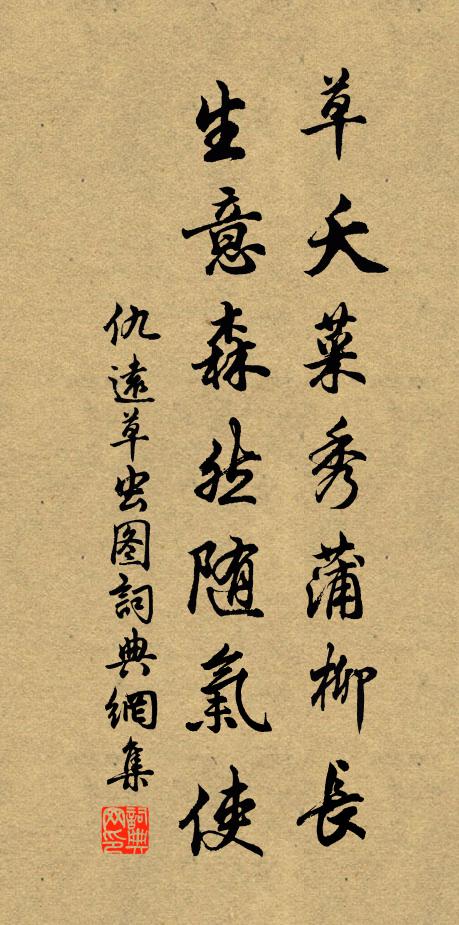 草夭菜秀蒲柳長
生意森然随氣使
仇遠草虫图詞典網集
詞典网印